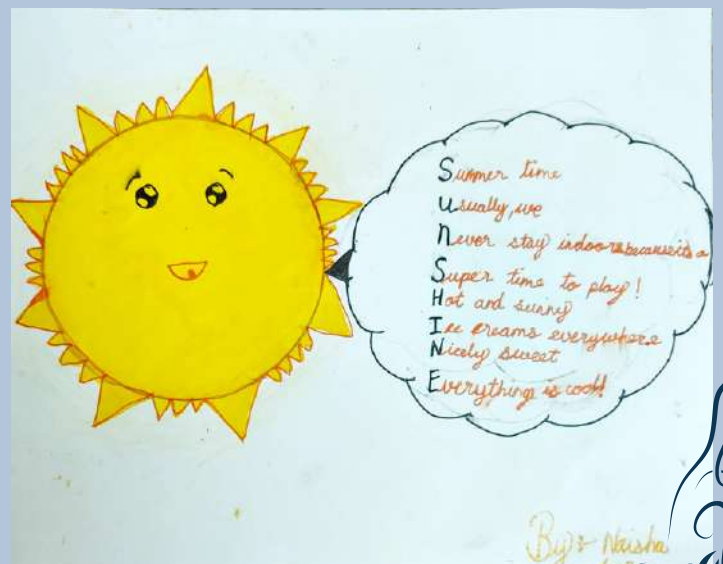 Summer time
Usually, we
Never stay indoors because its a
Super time to play!
Hot and sunny
Ice creams everywhere
Nicely sweet
Everything is cool!
By:- Naisha